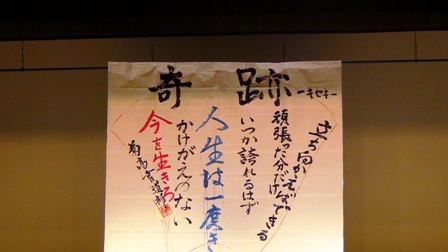 奇跡 ーキセキー
立ち向かえばできる
頑張った分だけ
いつか誇れるはず
人生は一度き
かけがえのない
今を生きろ
高書道部